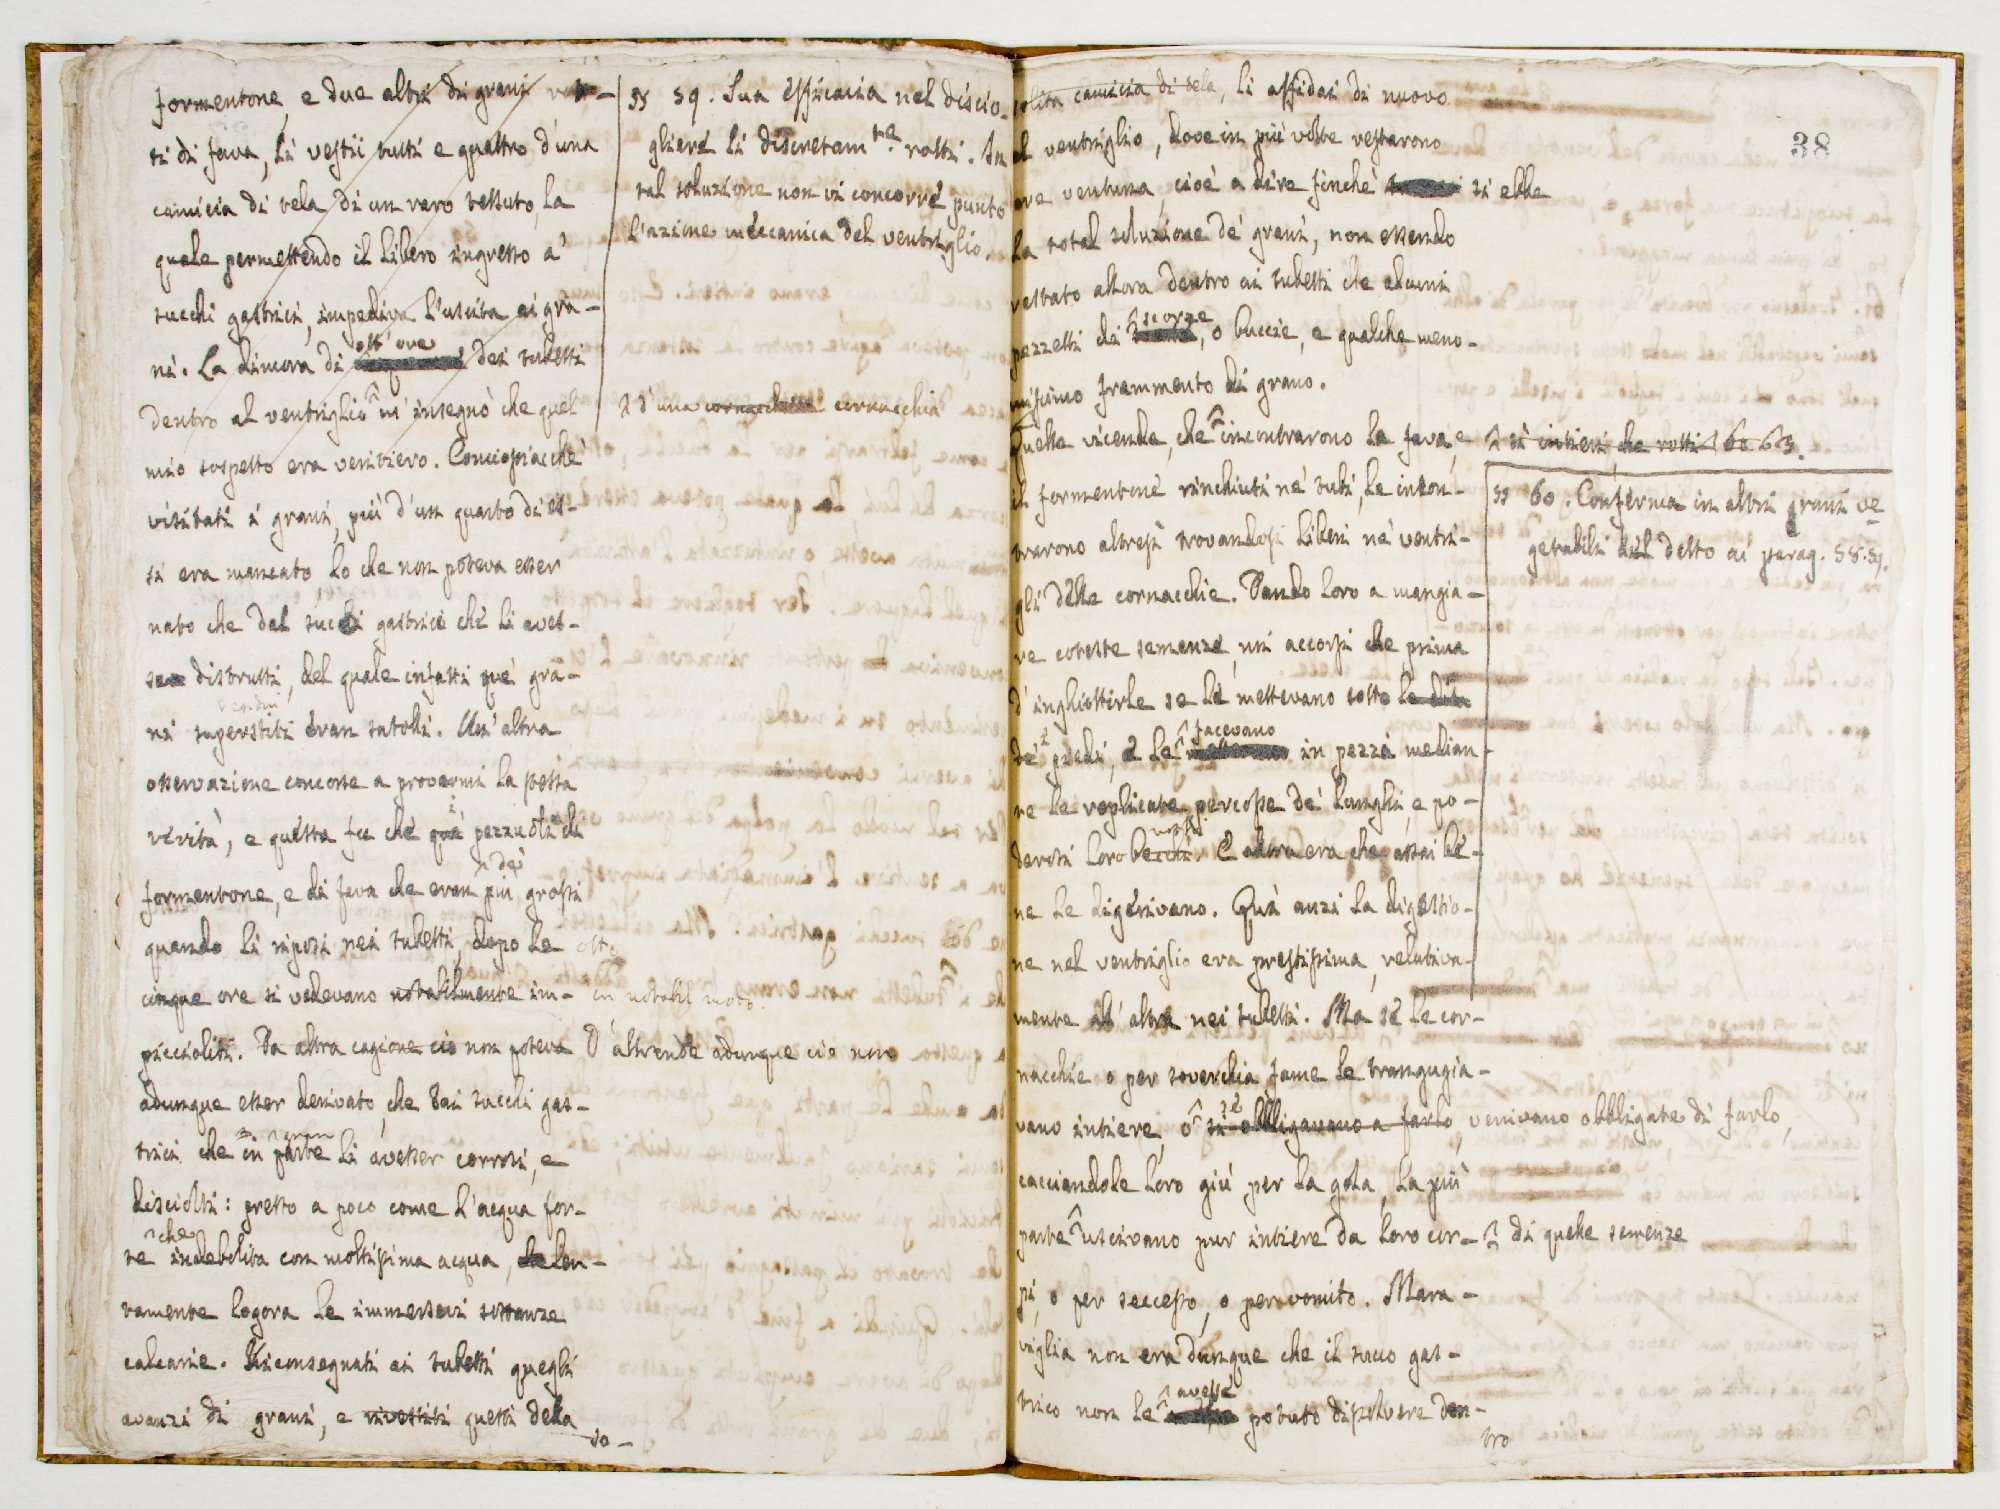 formentone, e due altri di grani rot-
ti di fava, li vestii tutti e quattro d'una
camicia di tela di un raro tessuto, la
quale permettendo il libero ingresso a'
succhi gastrici, impediva l'uscita ai gra-
ni. La dimora di ott'ore dei tubetti
dentro al ventriglio m'insegnò che quel
mio sospetto era veritiero. Conciosiacchè
visitati i grani, più d'un quarto di es-
si era mancato, lo che non poteva esser
nato che dal succhi gastrici che li aves-
se distrutti, del quale infatti que' gra-
ni superstiti eran satolli. Un'altra
osservazione concorse a provarmi la stessa
verità, e questa fu che i pezzuoli di
formentone, e di fava che eran più grossi
quando li riposi nei tubetti, dopo le otto
cinque ore si vedevano notabilmente im- in notabil modo
piccioliti. Da altra cagione ciò non poteva D'altronde adunque ciò non
adunque esser derivato, che dai succhi gas-
trici che in parte li avesser corrosi, e
disciolti: presso a poco come l'acqua for-
te che indebolita con moltissima acqua, len-
tamente logora le immersevi sostanze
calcarie. Riconsegnati ai tubetti quegli
avanzi di grani, e rivestiti questi della
so-
§§ 59. Sua efficacia nel discio-
gliere li discretam.te rotti. In
tal soluzione non vi concorre punto
l'azione meccanica del ventriglio.
d'una cornacchia
38
solita camicia di tela, li affidai di nuovo
al ventriglio, dove in più volte restarono
ore ventuna, cioè a dire finchè si ebbe
la total soluzione de' grani, non essendo
restato allora dentro ai tubetti che alcuni
pezzetti di scorze, o buccie, e qualche meno-
missimo frammento di grano.
Quelle vicende, che incontrarono la fava e
il formentone rinchiusi ne' tubi, le incon-
trarono altresì trovandosi liberi ne' ventri-
gli delle cornacchie. Dando loro a mangia-
re coteste semenze, mi accorsi che prima
d'inghiottirle se le mettevano sotto le dita
de' piedi, e le facevano in pezzi median-
te le replicate percosse de' lunghi, e po-
derosi loro becchi. E allora era che assai be-
ne le digerivano. Quà anzi la digestio-
ne nel ventriglio era prestissima, relativa-
mente all'altra nei tubetti. Ma se le cor-
nacchie o per soverchia fame le trangugia-
vano intiere, o si obbligavano a farlo, venivano obbligate di farlo,
cacciandole loro giù per la gola, la più
parte uscivano pur intiere da loro cor- di quelle semenze
pi, o per secesso, o per vomito. Mara-
viglia non era dunque che il succo gas-
trico non le avesse potuto dissolvere den-
tro
sì intieri, che rotti 60 63.
§§ 60. Conferma in altri grani ve-
getabili del detto ai parag. 58.59.